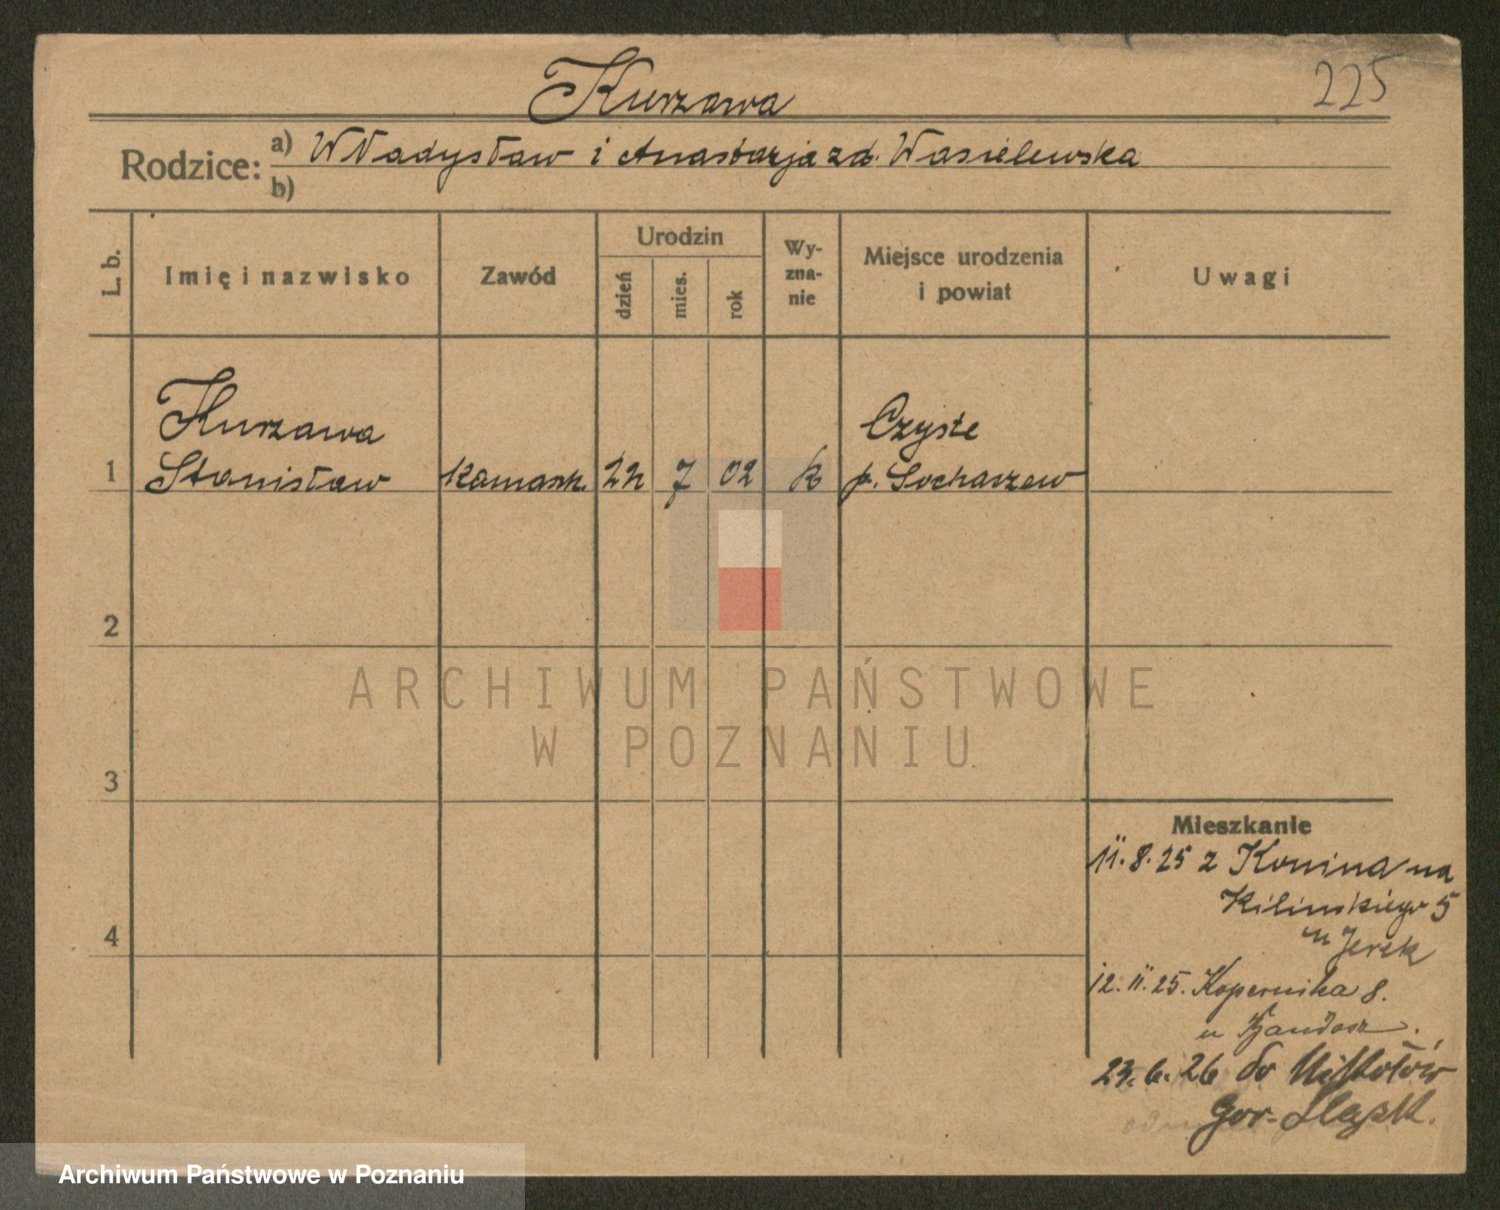 225
Kurzawa
Rodzice: a) Władysław i Anastazja zd. Wasielewska
b)
L. b. Imię i nazwisko Zawód Urodzin dzień mies. rok Wyznanie Miejsce urodzenia i powiat Uwagi
Kurzawa Czyste
1 Stanisław Kamaszn. 22 7 02 k p. Sochaczew
2
3
4
Mieszkanie
11.8.25 z Konina na
Kilińskiego 5
u Jerzk
12.11.25. Kopernika 8.
u
23.6.26 do Mikołów
Gór-Śląsk.
ARCHIWUM PAŃSTWOWE
W POZNANIU
Archiwum Państwowe w Poznaniu